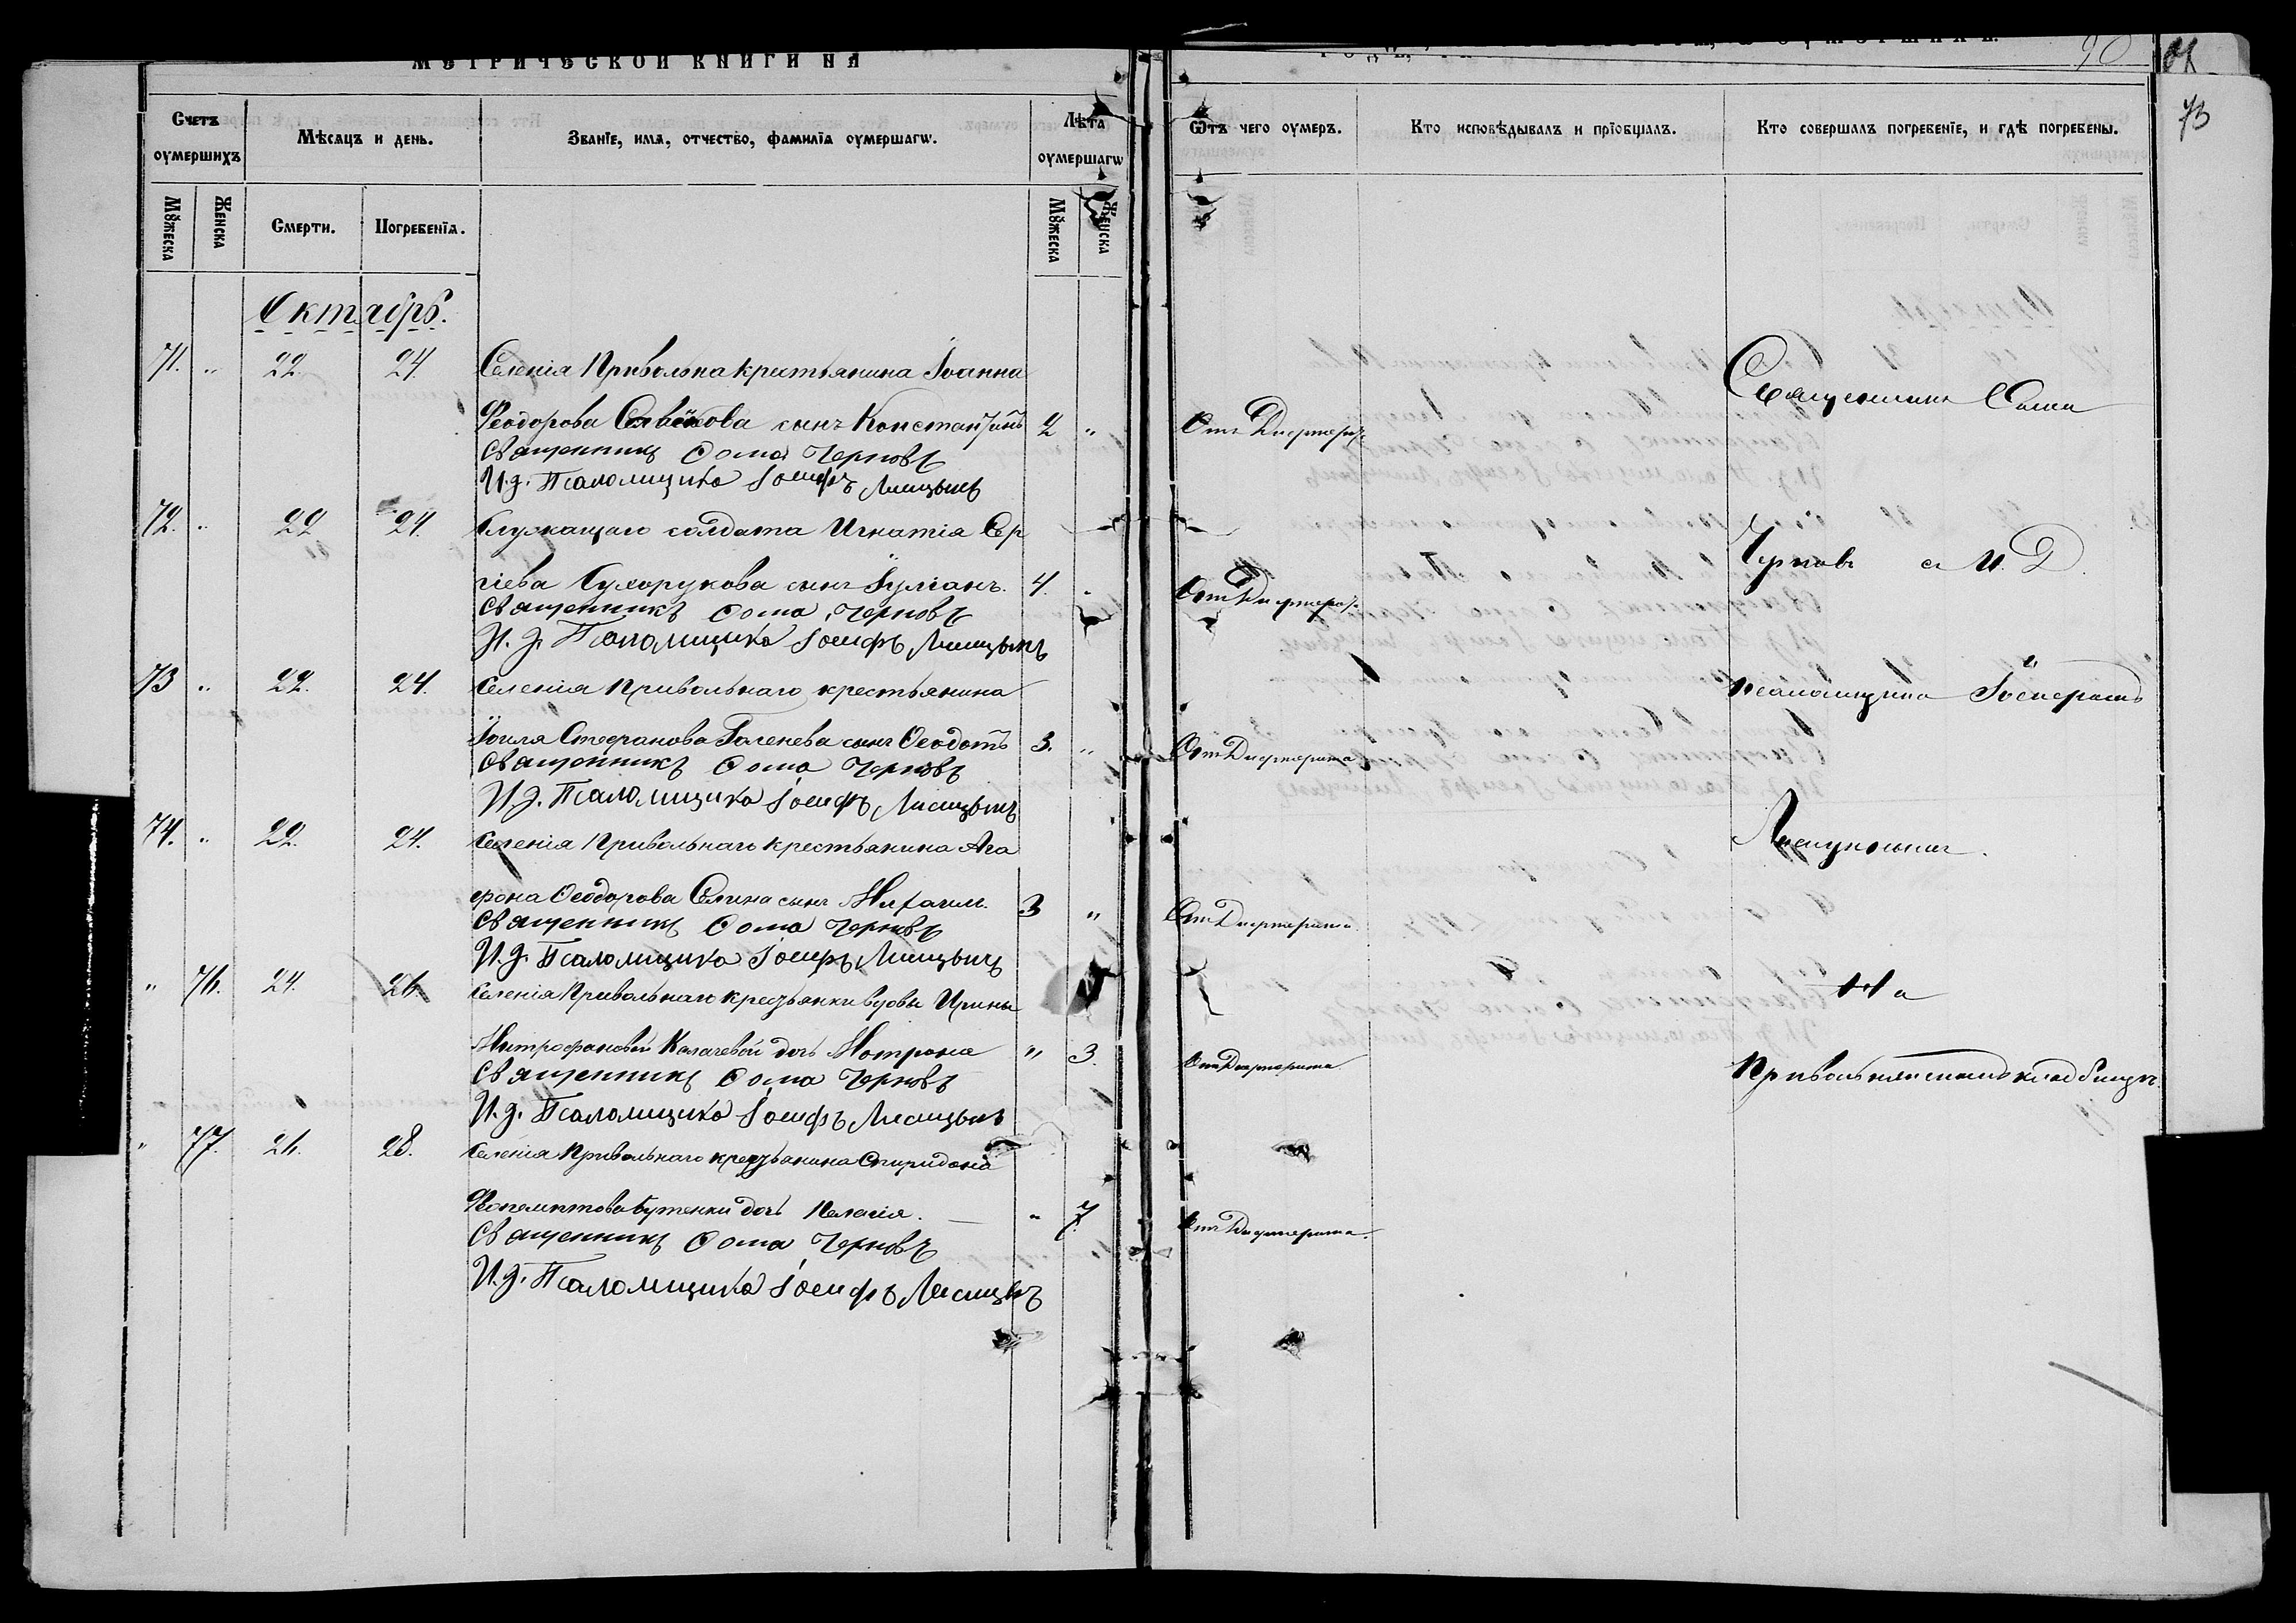 МЕТРИЧЕСКОЙ КНИГИ НА
90
73
Счетъ оумершихъ
Мѣсѧцъ и день.
Званїе, имѧ, отчество, фамилїа оумершагѡ.
Лѣта оумершагѡ
Ѿтъ чего оумеръ.
Кто исповѣдывалъ и прїобщалъ.
Кто совершалъ погребенїе, и гдѣ погребены.
Мꙋжеска
Женска
Смерти.
Погребенїѧ.
Мꙋжеска
Женска
Октябрь.
71. " 22. 24. Селенія Привольна крестьянина Іоанна
Ѳеодорова сынъ Константинъ 2 " Отъ Дифтерит
Священникъ Ѳома Черновъ
И. д. Псаломщика Іосифъ Лисицынъ
72. " 22 24. Служащаго солдата Игнатія Сер
гіева Сухорукова сынъ Іуліанъ. 4. " Отъ Дифтерит
Священникъ Ѳома Черновъ
И. д. Псаломщика Іосифъ Лисицынъ
73 " 22. 24. Селенія Привольнаго крестьянина
Іоиля Стефанова сынъ Ѳеодотъ 3. " Отъ Дифтерита
Священникъ Ѳома Черновъ
И. д. Псаломщика Іосифъ Лисицынъ
74. " 22. 24. Селенія Привольнаго крестьянина Ага
фона Ѳеодорова Елина сынъ Михаилъ. 3 " Отъ Дифтерита.
Священникъ Ѳома Черновъ
И. д. Псаломщика Іосифъ Лисицынъ
" 76. 24. 26. Селенія Привольнаго крестьянки вдовы Ирины
Митрофановой Калачевой дочь Матрона " 3. Отъ Дифтерита
Священникъ Ѳома Черновъ
И. д. Псаломщика Іосифъ Лисицынъ
" 77. 26. 28. Селенія Привольнаго крестьянина Спиридона
дочь Пелагія. " 7. Отъ Дифтерита.
Священникъ Ѳома Черновъ
И. д. Псаломщика Іосифъ Лисицынъ
Священникъ Ѳома
Черновъ съ И. Д.
псаломщика Іосифомъ
Лисицынымъ.
На
Привольнянскомъ кладбищѣ.